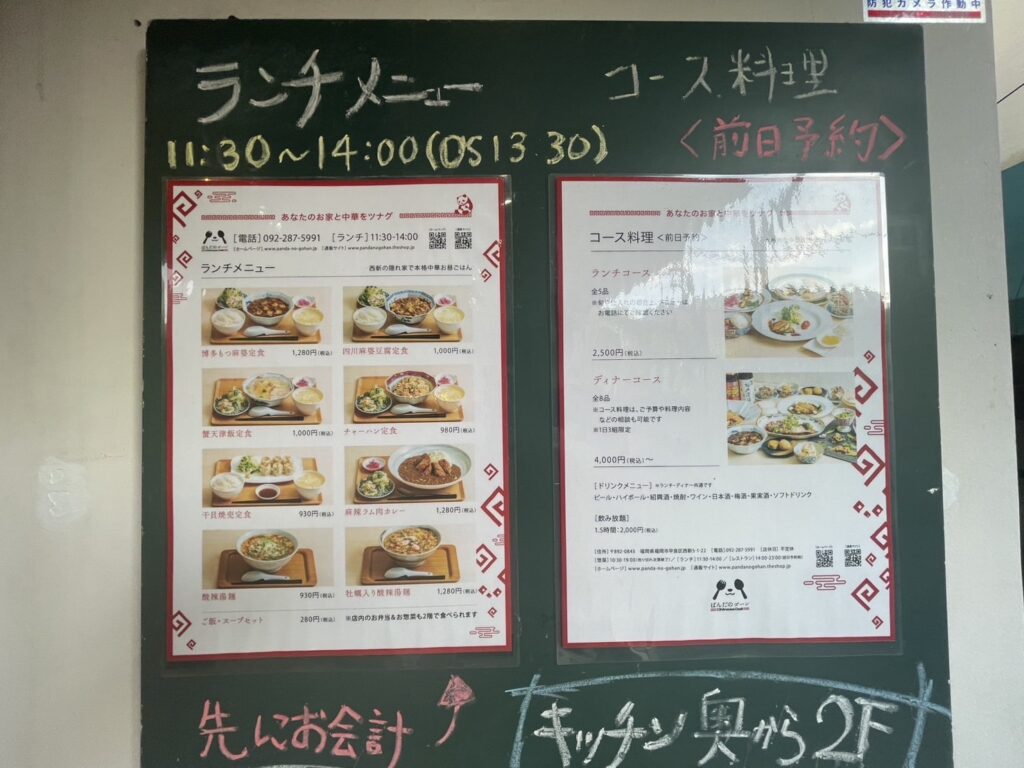 防犯カメラ作動中
ランチメニュー
11:30～14:00(OS13 30)
あなたのお家と中華をツナグ
[電話]092-287-5991 [ランチ]11:30-14:00
[ホームページ] www.panda-no-gohan.jp [通販サイト] www.pandanogohan.theshop.jp
ランチメニュー
西新の隠れ家で本格中華お昼ごはん
博多もつ麻婆定食 1,280円(税込)
四川麻婆豆腐定食 1,000円(税込)
蟹天津飯定食 1,000円(税込)
チャーハン定食 980円(税込)
干貝焼売定食 930円(税込)
麻辣ラム肉カレー 1,280円(税込)
酸辣湯麺 930円(税込)
牡蠣入り酸辣湯麺 1,280円(税込)
ご飯・スープセット 280円(税込)
※店内のお弁当&お惣菜も2階で食べられます
先にお会計
コース料理
<前日予約>
あなたのお家と中華をツナグ
コース料理 <前日予約>
ランチコース
全5品
お電話にてご確認ください
2,500円(税込)
ディナーコース
全8品
※コース料理は、ご予算や料理内容
などの相談も可能です
※1日3組限定
4,000円(税込)～
[ドリンクメニュー] ※ランチ・ディナー共通です
ビール・ハイボール・紹興酒・焼酎・ワイン・日本酒・梅酒・果実酒・ソフトドリンク
[飲み放題]
1.5時間:2,000円(税込)
[ホームページ] www.panda-no-gohan.jp [通販サイト] www.pandanogohan.theshop.jp
ぱんだのゴハン
キッチン奥から2F